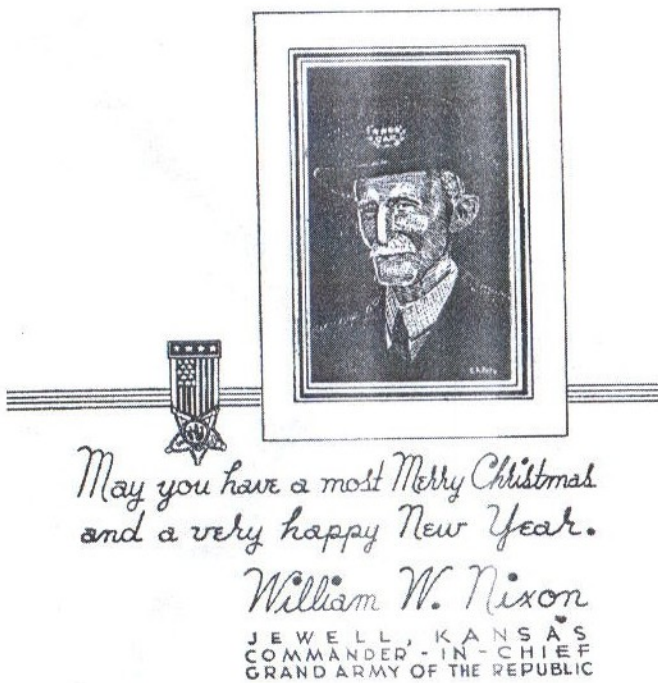 May you have a most Merry Christmas
and a very happy New Year.
William W. Nixon
JEWELL, KANSAS
COMMANDER-IN-CHIEF
GRAND ARMY OF THE REPUBLIC